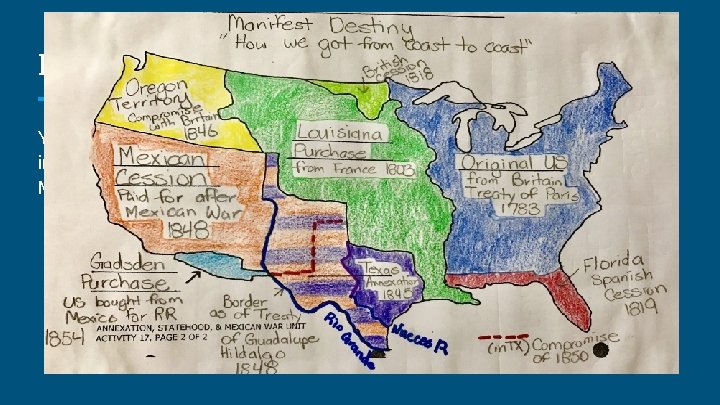 Manifest Destiny
"How we got from coast to coast"
British
Cession
1818
Oregon
Territory
Compromise
with Britain
1846
Louisiana
Purchase
from France 1803
Mexican
Cession
Paid for after
Mexican War
1848
Original US
from Britain
Treaty of Paris
1783
Gadsden
Purchase
US bought from
Mexico for RR
1854
Border
as of Treaty
of Guadalupe
Hildalgo
1848
Texas
Annexation
1845
Florida
Spanish
Cession
1819
Rio Grande
Nueces R
(in TX) Compromise
of 1850
ANNEXATION, STATEHOOD, & MEXICAN WAR UNIT
ACTIVITY 17, PAGE 2 OF 2